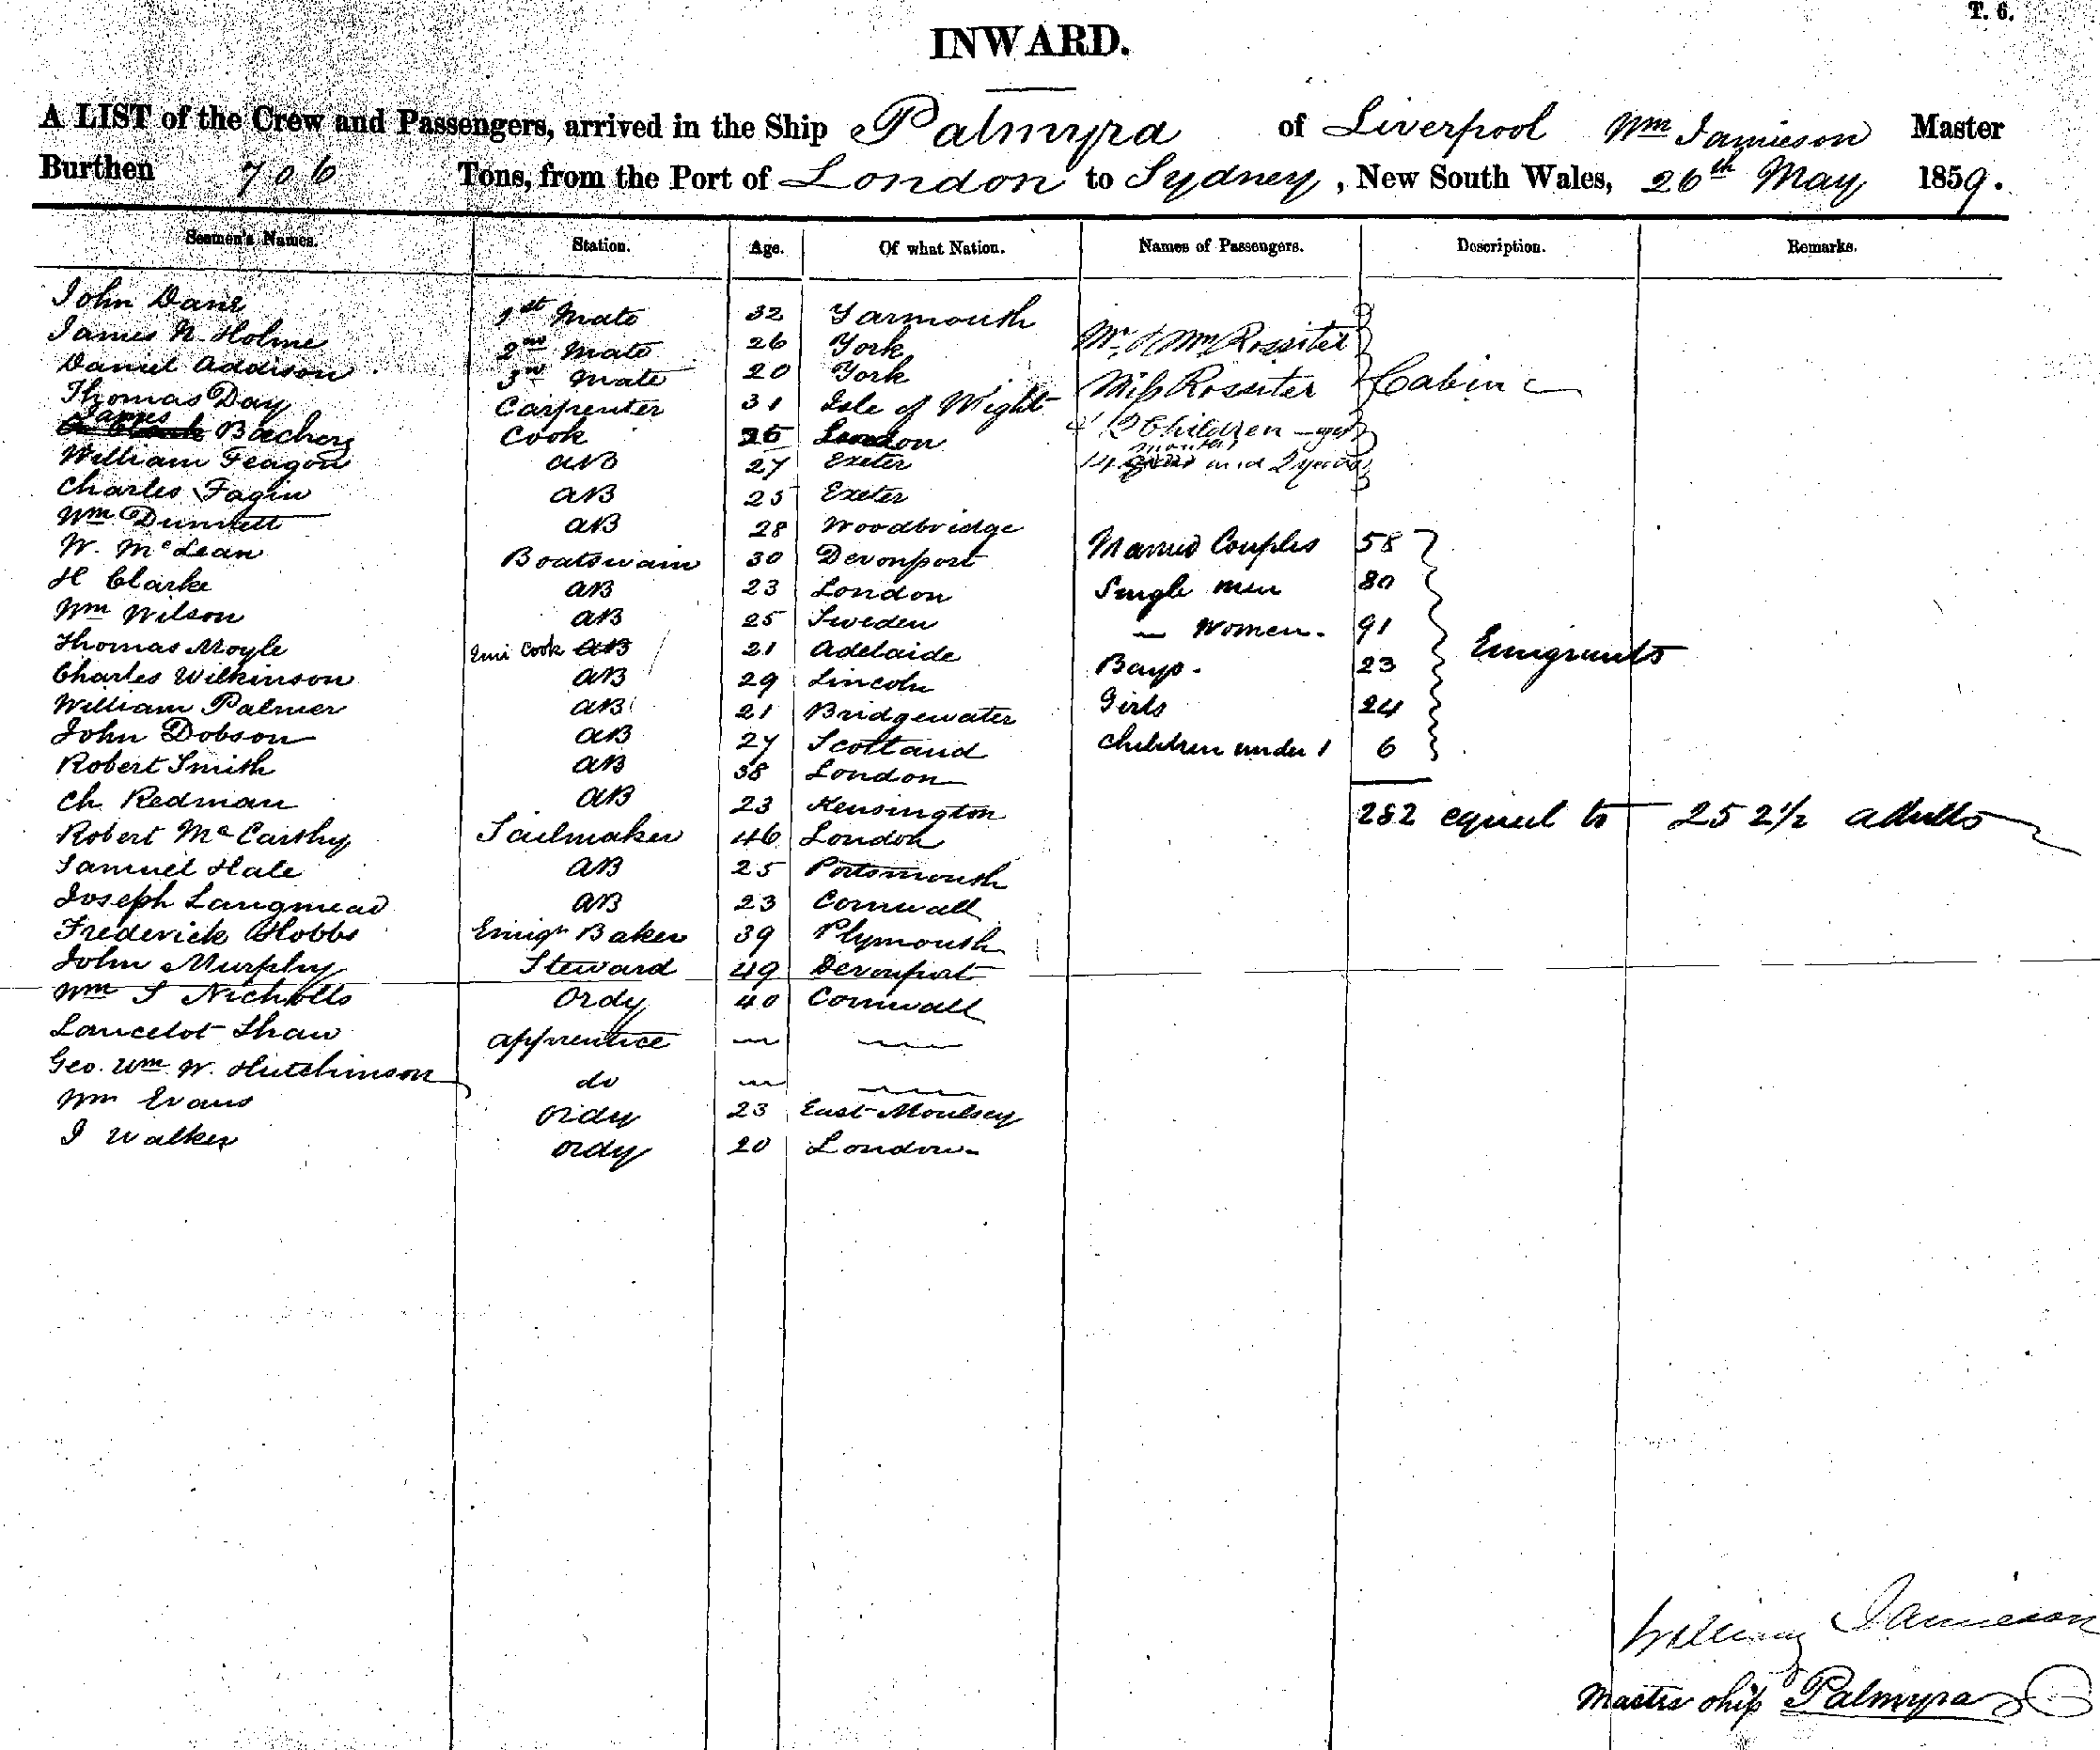 T. 6.
INWARD.
A LIST of the Crew and Passengers, arrived in the Ship Palmyra of Liverpool Wm Jamieson Master
Burthen 706 Tons, from the Port of London to Sydney, New South Wales, 26th May 1859.
Seamen's Names. Station. Age. Of what Nation. Names of Passengers. Description. Remarks.
John Dane 1st Mate 32 Yarmouth
James N. Holme 2nd Mate 26 York Mr. & Mrs Rossiter
Daniel Addison 3rd Mate 20 York Miss Rossiter Cabin
Thomas Day Carpenter 31 Isle of Wight
James Cook 26 London & 2 Children
William Feagon AB 27 Exeter 14 months and 2 years
Charles Fagin AB 25 Exeter
Wm Dunnett AB 28 Woodbridge
W. McLean Boatswain 30 Devonport Married Couples 58
H Clarke AB 23 London Single men 80
Wm Wilson AB 25 Sweden — Women. 91
Thomas Moyle Emi Cook AB 21 Adelaide Emigrants
Charles Wilkinson AB 29 Lincoln Boys. 23
William Palmer AB 21 Bridgewater Girls 24
John Dobson AB 27 Scotland Children under 1 6
Robert Smith AB 38 London
Ch Redman AB 23 Kensington 282 equal to 252 1/2 adults
Robert McCarthy Sailmaker 46 London
Samuel Hale AB 25 Portsmouth
Joseph Langmead AB 23 Cornwall
Frederick Hobbs Emign Baker 39 Plymouth
John Murphy Steward 49 Devonport
Wm S Nicholls Ordy 40 Cornwall
Lancelot Shaw apprentice — —
Geo. Wm. W. Hutchinson do — —
Wm Evans Ordy 23 East Moulsey
J Walker Ordy 20 London
William Jamieson
Master Ship Palmyra